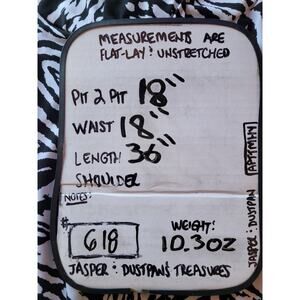 MEASUREMENTS ARE
FLAT-LAY: UNSTRETCHED
PIT 2 PIT 18"
WAIST 18"
LENGTH 36"
SHOULDER
NOTES:
#
618
WEIGHT:
10.3oz
JASPER: DUSTPAN'S TREASURES
JASPER: DUSTPAN